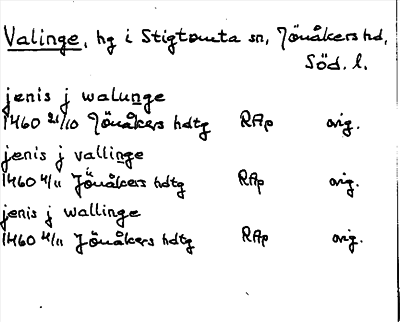 Valinge, hg i Stigtomta sn, Jönåkers hd,
Söd. l.
jenis j walunge
1460 21/10 Jönåkers hdtg RAp orig.
jenis j vallinge
1460 4/11 Jönåkers hdtg RAp orig.
jenis j wallinge
1460 4/11 Jönåkers hdtg RAp orig.